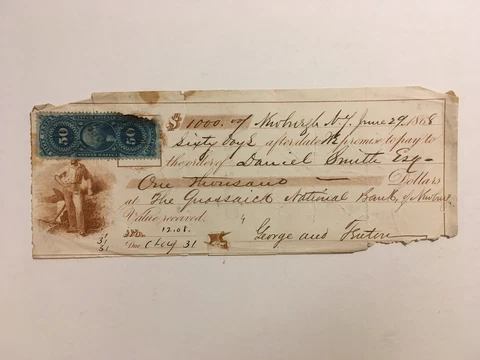 50 50
$1000. 00/ Newburgh NY, June 29, 1868
Sixty days after date We promise to pay to
the order of Daniel Smith Esq
One thousand Dollars
at The Quassaick National Bank of Newburgh
Value received.
12.08.
Due, 31
George and
31
31